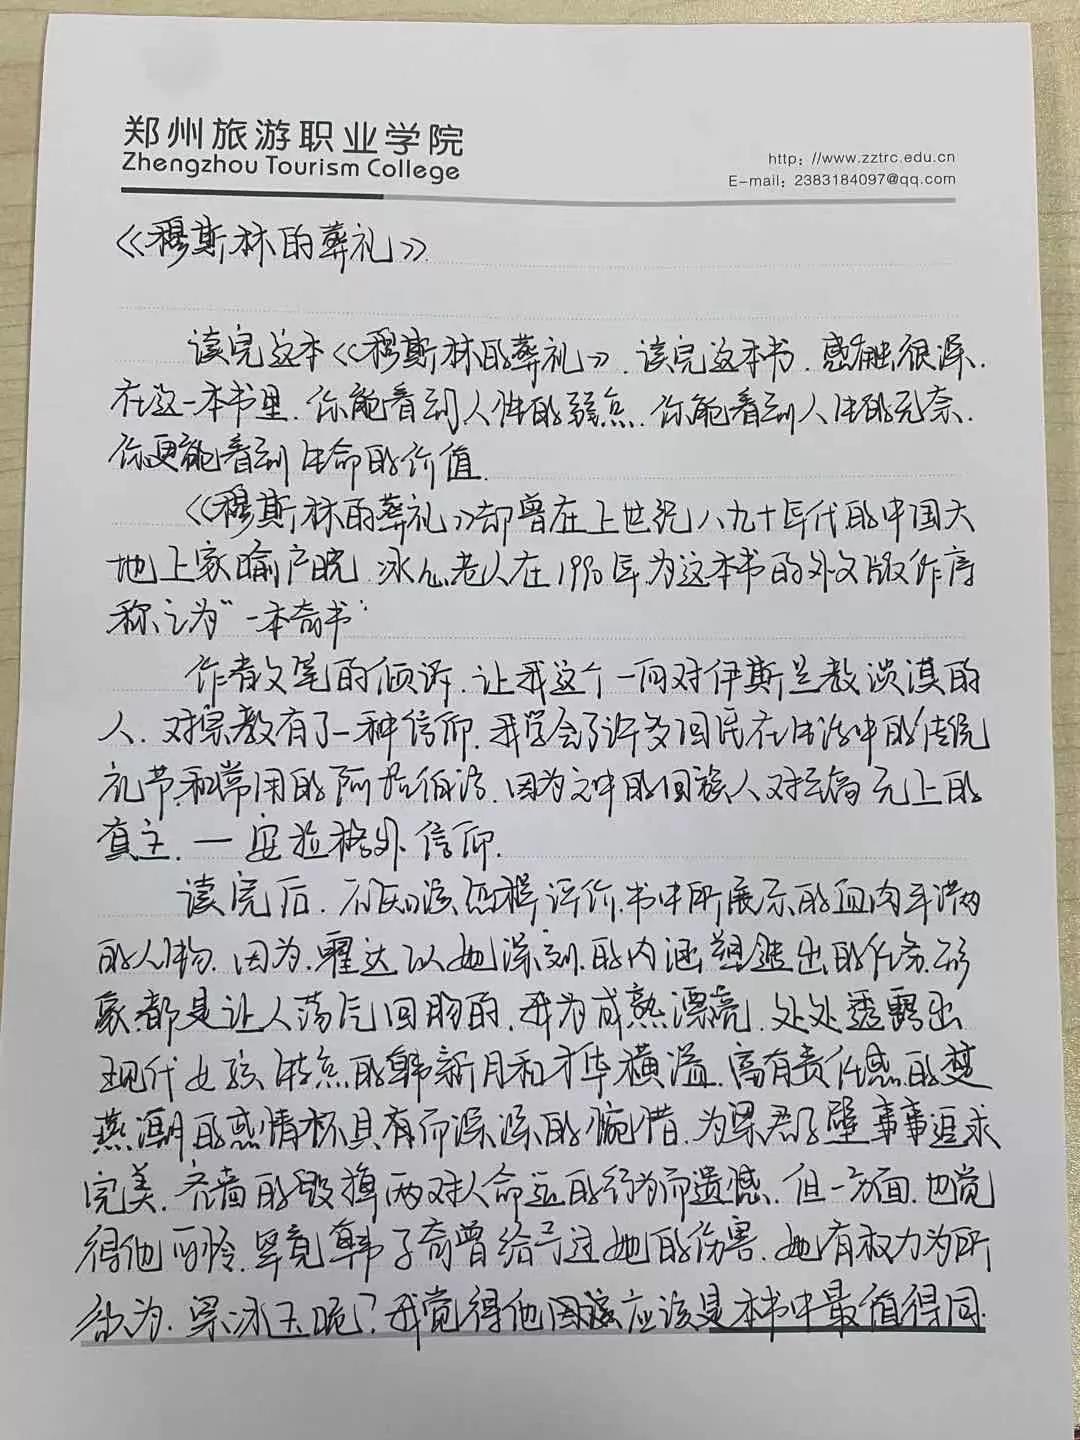 郑州旅游职业学院
Zhengzhou Tourism College
http: //www.zztrc.edu.cn
E-mail: 2383184097@qq.com
《穆斯林的葬礼》.
读完这本《穆斯林的葬礼》.读完这本书.感触很深.
在这一本书里.你能看到人性的弱点.你能看到人性的无奈.
你更能看到生命的价值.
《穆斯林的葬礼》却曾在上世纪八九十年代的中国大
地上家喻户晓.冰心老人在1990年为这本书的外文版作序
称之为"一本奇书"
作者文笔的倾诉.让我这个一向对伊斯兰教淡漠的
人.对宗教有了一种信仰.我学会了许多回民在生活中的传统
礼节和常用的阿拉伯语.因为文中的回族人对至高无上的
真主.一安拉格外信仰.
读完后.不知该怎样评价.书中所展示的血肉丰满
的人物.因为.霍达以她深刻.的内涵塑造出的任务形
象都是让人荡气回肠的.我为成熟漂亮.处处透露出
现代女孩特点的韩新月和才华横溢.富有责任感的楚
燕潮的感情杯具有而深深的惋惜.为梁君璧事事追求
完美.吝啬的毁掉两对人命运的行为而遗憾.但一方面.也觉
得他可怜.毕竟韩子奇曾给予过她的伤害.她有权力为所
欲为.梁冰玉呢?我觉得他因该应该是本书中最值得同.